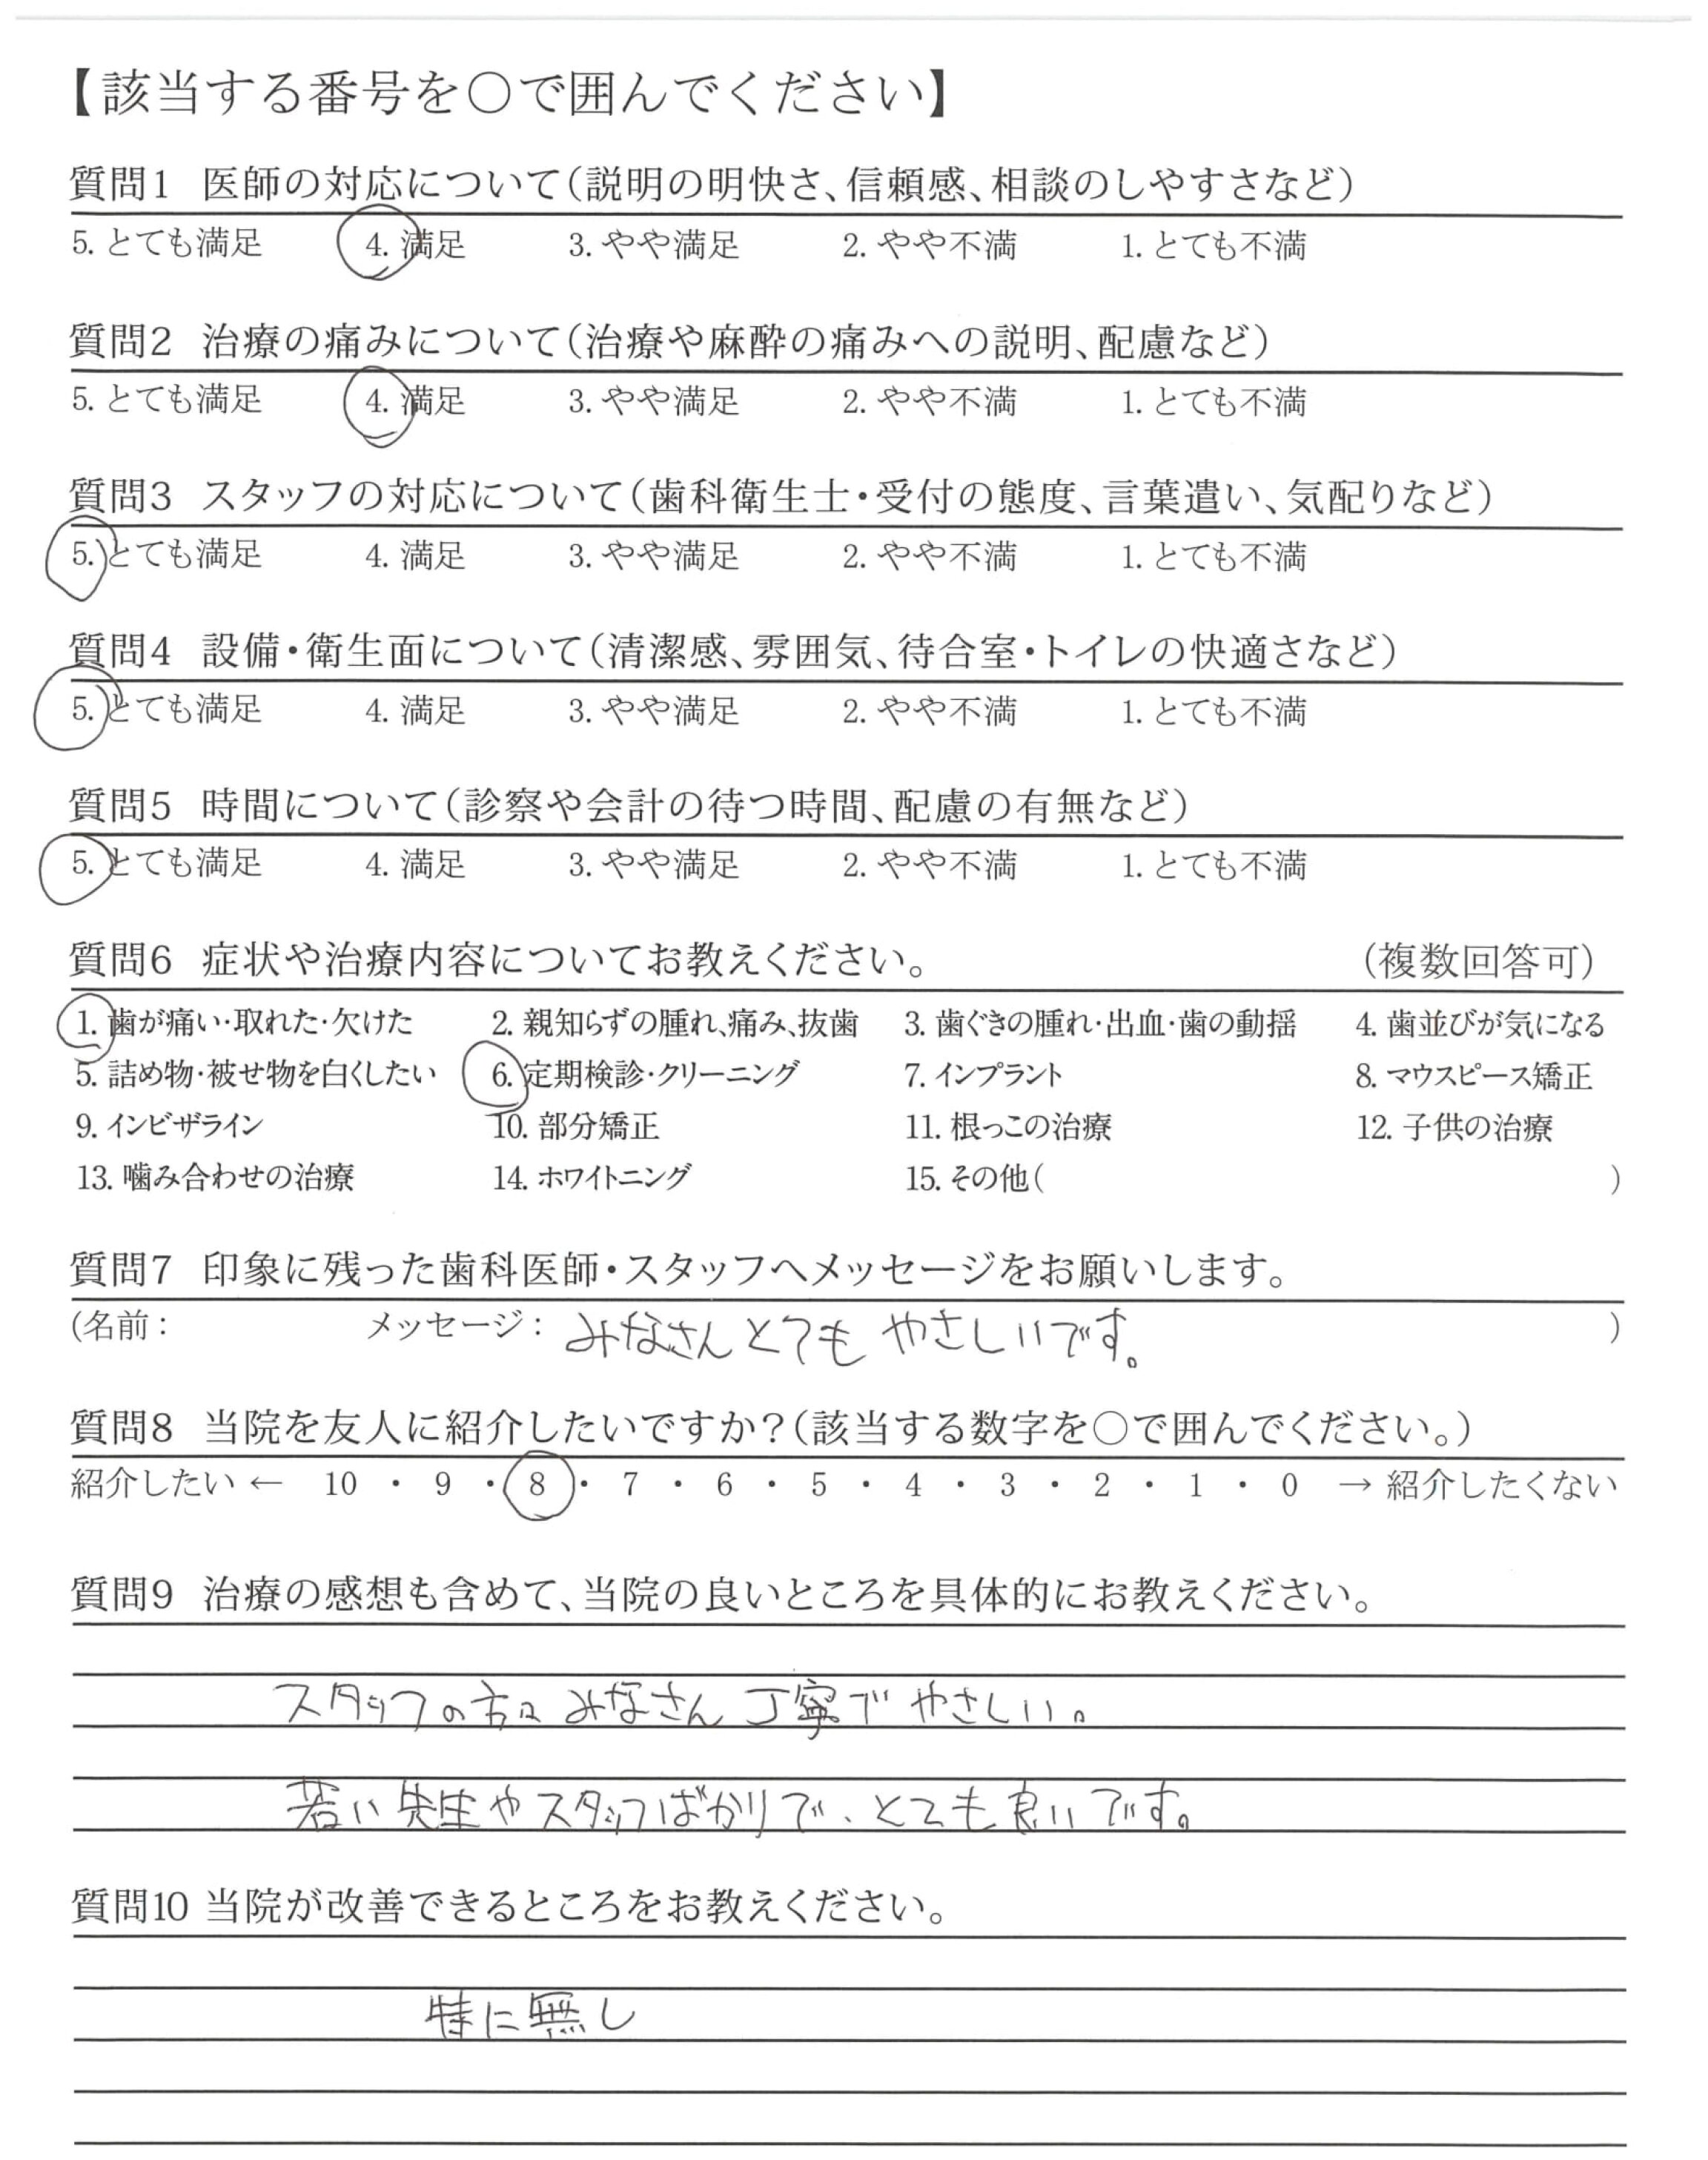 【該当する番号を○で囲んでください】
質問1 医師の対応について(説明の明快さ、信頼感、相談のしやすさなど)
5. とても満足 4. 満足 3. やや満足 2. やや不満 1. とても不満
質問2 治療の痛みについて(治療や麻酔の痛みへの説明、配慮など)
5. とても満足 4. 満足 3. やや満足 2. やや不満 1. とても不満
質問3 スタッフの対応について(歯科衛生士・受付の態度、言葉遣い、気配りなど)
5. とても満足 4. 満足 3. やや満足 2. やや不満 1. とても不満
質問4 設備・衛生面について(清潔感、雰囲気、待合室・トイレの快適さなど)
5. とても満足 4. 満足 3. やや満足 2. やや不満 1. とても不満
質問5 時間について(診察や会計の待つ時間、配慮の有無など)
5. とても満足 4. 満足 3. やや満足 2. やや不満 1. とても不満
質問6 症状や治療内容についてお教えください。 (複数回答可)
1. 歯が痛い・取れた・欠けた 2. 親知らずの腫れ、痛み、抜歯 3. 歯ぐきの腫れ・出血・歯の動揺 4. 歯並びが気になる
5. 詰め物・被せ物を白くしたい 6. 定期検診・クリーニング 7. インプラント 8. マウスピース矯正
9. インビザライン 10. 部分矯正 11. 根っこの治療 12. 子供の治療
13. 噛み合わせの治療 14. ホワイトニング 15. その他( )
質問7 印象に残った歯科医師・スタッフへメッセージをお願いします。
(名前: メッセージ: みなさんとても やさしいです。 )
質問8 当院を友人に紹介したいですか?(該当する数字を○で囲んでください。)
紹介したい ← 10 ・ 9 ・ 8 ・ 7 ・ 6 ・ 5 ・ 4 ・ 3 ・ 2 ・ 1 ・ 0 → 紹介したくない
質問9 治療の感想も含めて、当院の良いところを具体的にお教えください。
スタッフの方々 みなさん 丁寧で やさしい。
若い先生やスタッフばかりで、とても良いです。
質問10 当院が改善できるところをお教えください。
特に無し